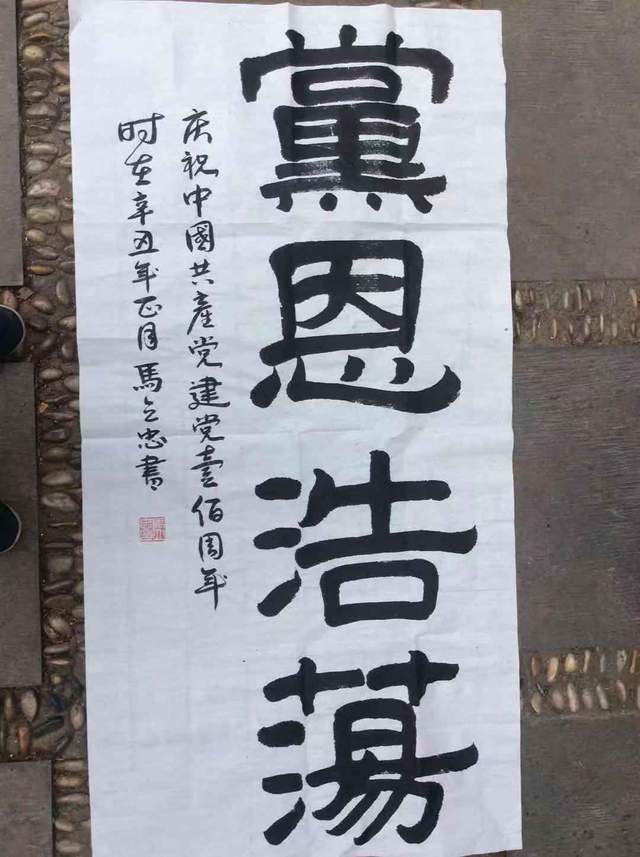 黨恩浩蕩
庆祝中國共産党建党壹佰周年
时在辛丑年正月馬立忠書